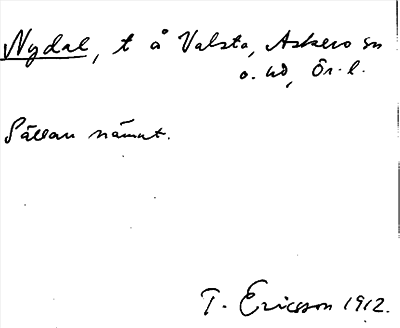 Nydal, t å Valsta, Askers sn
o. hd, Ör. l.
Sällan nämnt.
T. Ericsson 1912.